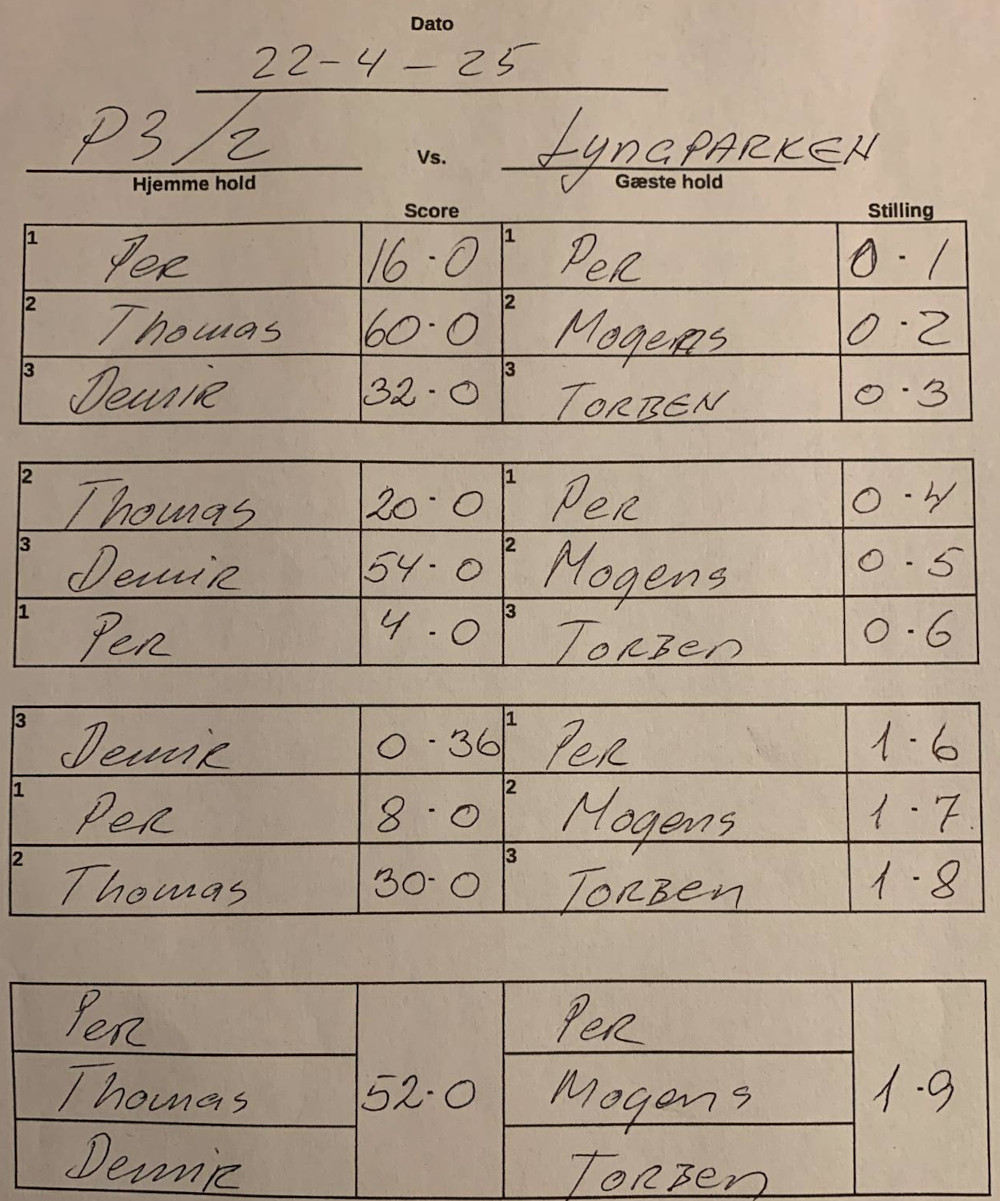 Dato
22-4-25
P3/2 Vs. LyngPARKEN
Hjemme hold Gæste hold
Score Stilling
1 Per 16-0 1 Per 0-1
2 Thomas 60-0 2 Mogens 0-2
3 Demir 32-0 3 TORBEN 0-3
2 Thomas 20-0 1 Per 0-4
3 Demir 54-0 2 Mogens 0-5
1 Per 4-0 3 TORBen 0-6
3 Demir 0-36 1 Per 1-6
1 Per 8-0 2 Mogens 1-7
2 Thomas 30-0 3 TORBen 1-8
Per Per
Thomas 52-0 Mogens 1-9
Demir TORBen